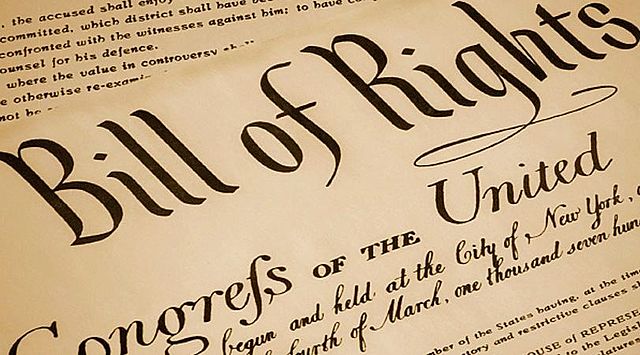 , the accused shall enjoy
committed, which district shall have bee
confronted with the witnesses against him; to have co
ounsel for his defence.
where the value in controversy sh
e otherwise re-exami
not be
Bill of Rights
Congreſs OF THE United
begun and held at the City of New York,
fourth of March, one thousand seven hun
mber of the States having, at the tim
tory and restrictive clauses sh
OUSE of REPRESE
the Legisl
lature